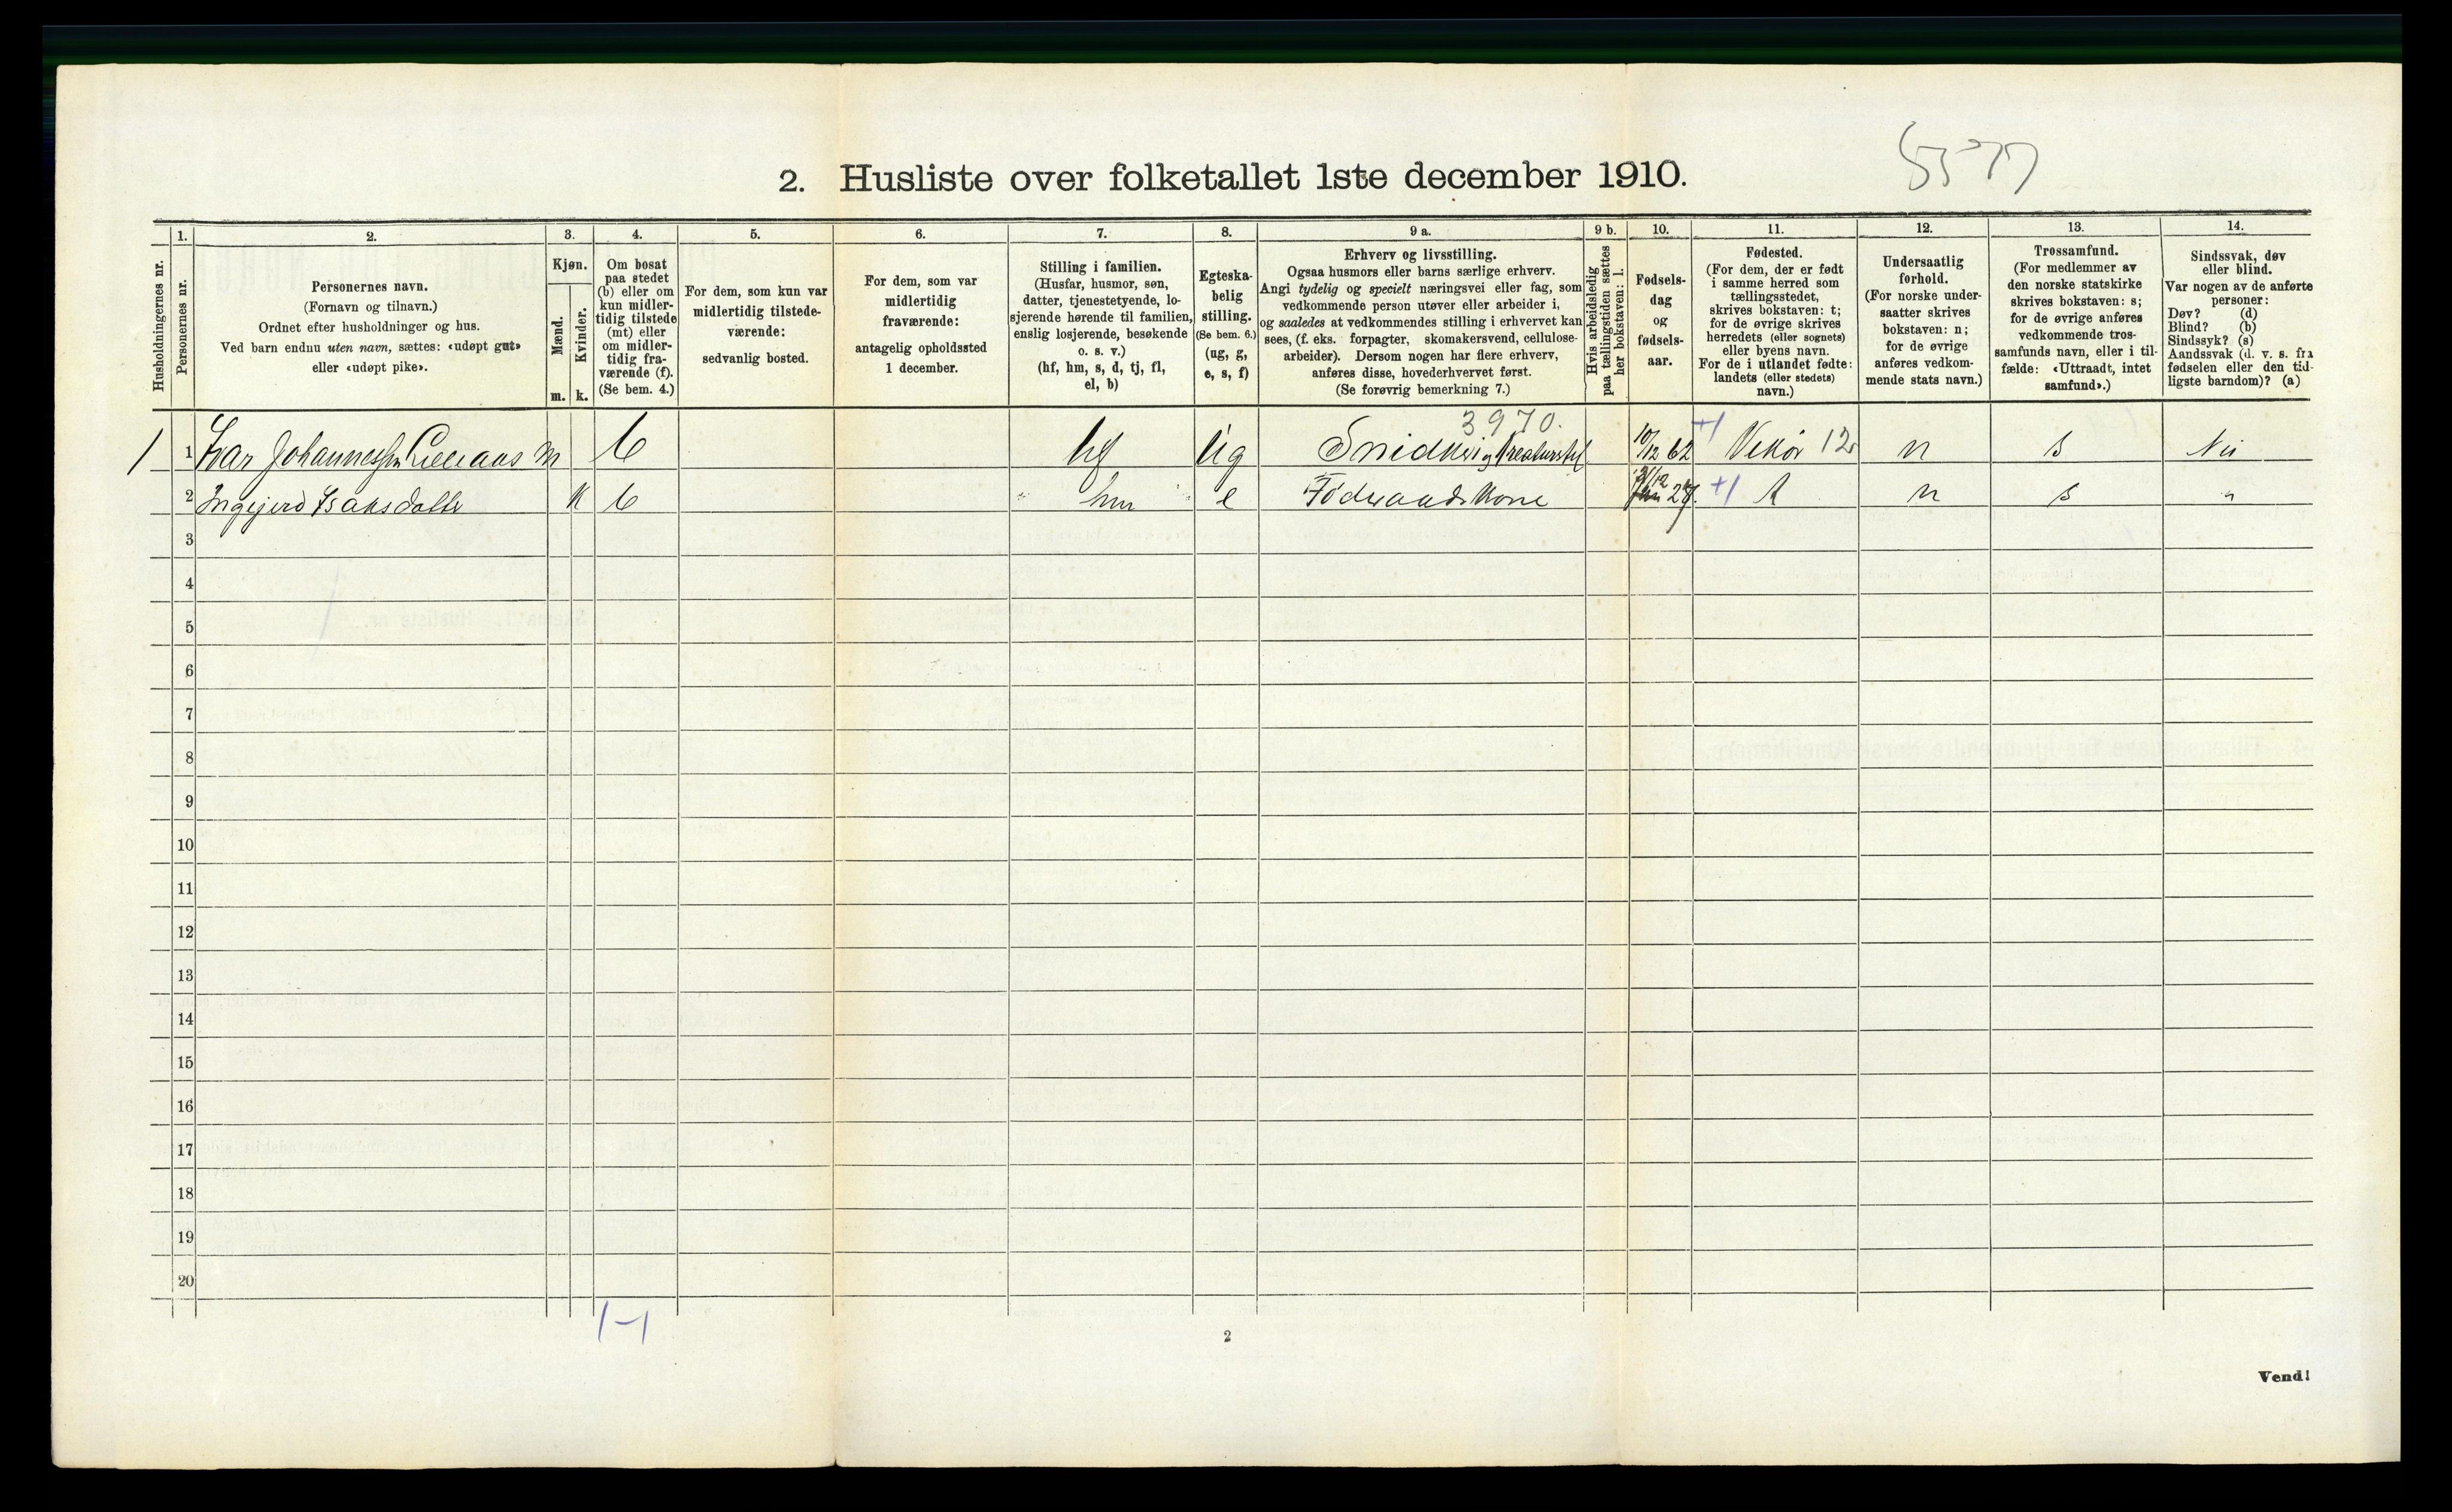 5577
2. Husliste over folketallet 1ste december 1910.
Husholdningernes nr.
1.
Personernes nr.
2.
Personernes navn.
(Fornavn og tilnavn.)
Ordnet efter husholdninger og hus.
Ved barn endnu uten navn, sættes: «udøpt gut»
eller «udøpt pike».
3.
Kjøn.
Mænd.
Kvinder.
m. k.
4.
Om bosat
paa stedet
(b) eller om
kun midler-
tidig tilstede
(mt) eller
om midler-
tidig fra-
værende (f).
(Se bem. 4.)
5.
For dem, som kun var
midlertidig tilstede-
værende:
sedvanlig bosted.
6.
For dem, som var
midlertidig
fraværende:
antagelig opholdssted
1 december.
7.
Stilling i familien.
(Husfar, husmor, søn,
datter, tjenestetyende, lo-
sjerende hørende til familien,
enslig losjerende, besøkende
o. s. v.)
(hf, hm, s, d, tj, fl,
el, b)
8.
Egteska-
belig
stilling.
(Se bem. 6.)
(ug, g,
e, s, f)
9 a.
Erhverv og livsstilling.
Ogsaa husmors eller barns særlige erhverv.
Angi tydelig og specielt næringsvei eller fag, som
vedkommende person utøver eller arbeider i,
og saaledes at vedkommendes stilling i erhvervet kan
sees, (f. eks. forpagter, skomakersvend, cellulose-
arbeider). Dersom nogen har flere erhverv,
anføres disse, hovederhvervet først.
(Se forøvrig bemerkning 7.)
9 b.
Hvis arbeidsledig
paa tællingstiden sættes
her bokstaven: l.
10.
Fødsels-
dag
og
fødsels-
aar.
11.
Fødested.
(For dem, der er født
i samme herred som
tællingsstedet,
skrives bokstaven: t;
for de øvrige skrives
herredets (eller sognets)
eller byens navn.
For de i utlandet fødte:
landets (eller stedets)
navn.)
12.
Undersaatlig
forhold.
(For norske under-
saatter skrives
bokstaven: n;
for de øvrige
anføres vedkom-
mende stats navn.)
13.
Trossamfund.
(For medlemmer av
den norske statskirke
skrives bokstaven: s;
for de øvrige anføres
vedkommende tros-
samfunds navn, eller i til-
fælde: «Uttraadt, intet
samfund».)
14.
Sindssvak, døv
eller blind.
Var nogen av de anførte
personer:
Døv? (d)
Blind? (b)
Sindssyk? (s)
Aandssvak (d. v. s. fra
fødselen eller den tid-
ligste barndom)? (a)
3970.
1 1 Ivar Johannessen m b hf ug 10/12 62 +1 Vikør 12 n s Nei
2 Ingjerd Isaksdatter k b hm e Føderaadskone +1 n s "
3
4
5
6
7
8
9
10
11
12
13
14
15
16
17
18
19
20
1-1
2
Vend!